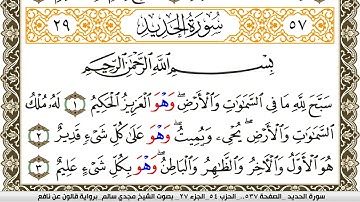 ٢٩ سُورَةُ الحَدِيدِ ٥٧
بِسْمِ اللَّهِ الرَّحْمَٰنِ الرَّحِيمِ
سَبَّحَ لِلَّهِ مَا فِي السَّمَٰوَٰتِ وَالْأَرْضِ وَهْوَ الْعَزِيزُ الْحَكِيمُ ١ لَهُ مُلْكُ
السَّمَٰوَٰتِ وَالْأَرْضِ يُحْيِۦ وَيُمِيتُ وَهْوَ عَلَىٰ كُلِّ شَيْءٍ قَدِيرٌ ٢
هُوَ الْأَوَّلُ وَالْآخِرُ وَالظَّٰهِرُ وَالْبَاطِنُ وَهْوَ بِكُلِّ شَيْءٍ عَلِيمٌ ٣
سورة الحديد _الصفحة ٥٣٧_ الحزب ٥٤_الجزء ٢٧_ بصوت الشيخ مجدي سالم_برواية قالون عن نافع